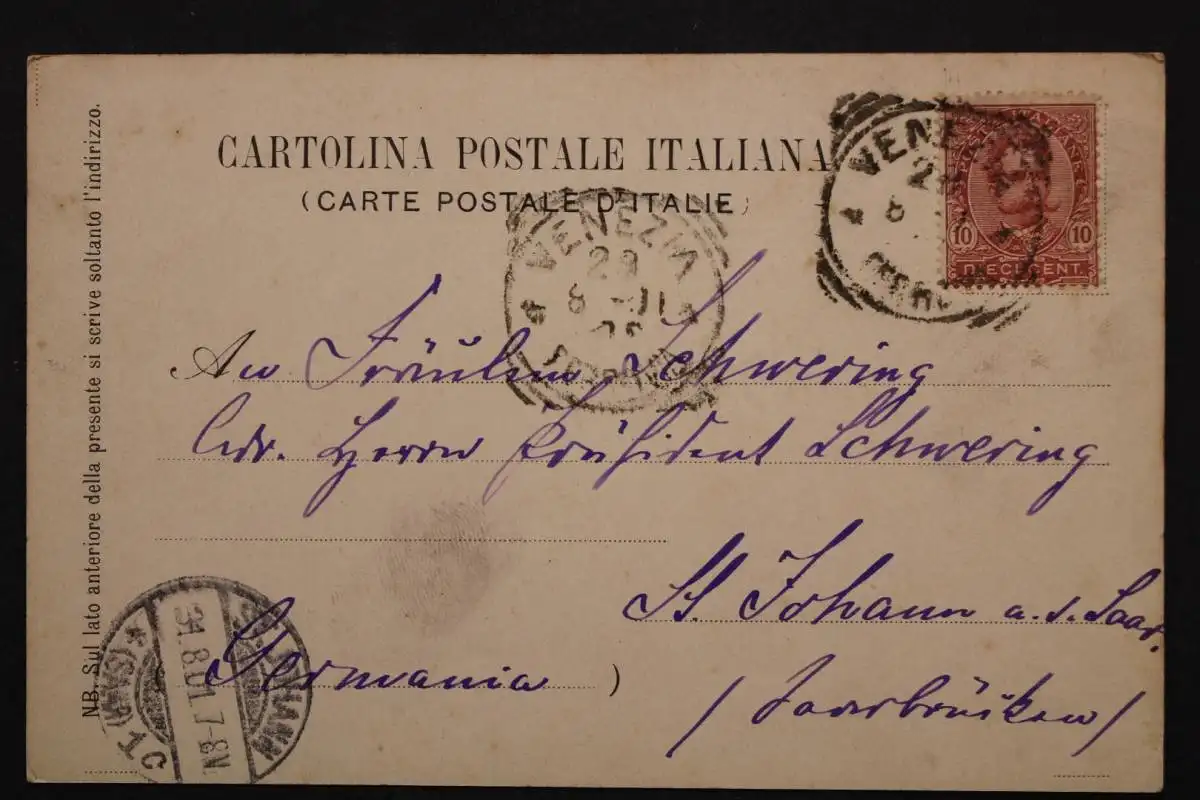 CARTOLINA POSTALE ITALIANA
(CARTE POSTALE D'ITALIE)
NB. Sul lato anteriore della presente si scrive soltanto l'indirizzo.
VENEZIA
29
8
POSTE ITALIANE
10 10
DIECI CENT.
VENEZIA
29
8-01
An Fräulein Schwering
Adr. Herrn Präsident Schwering
St. Johann a. d. Saar.
(Germania)
/Saarbrücken/
ST. JOHANN
31.8.01.7-8N.
* (SAAR) 1C